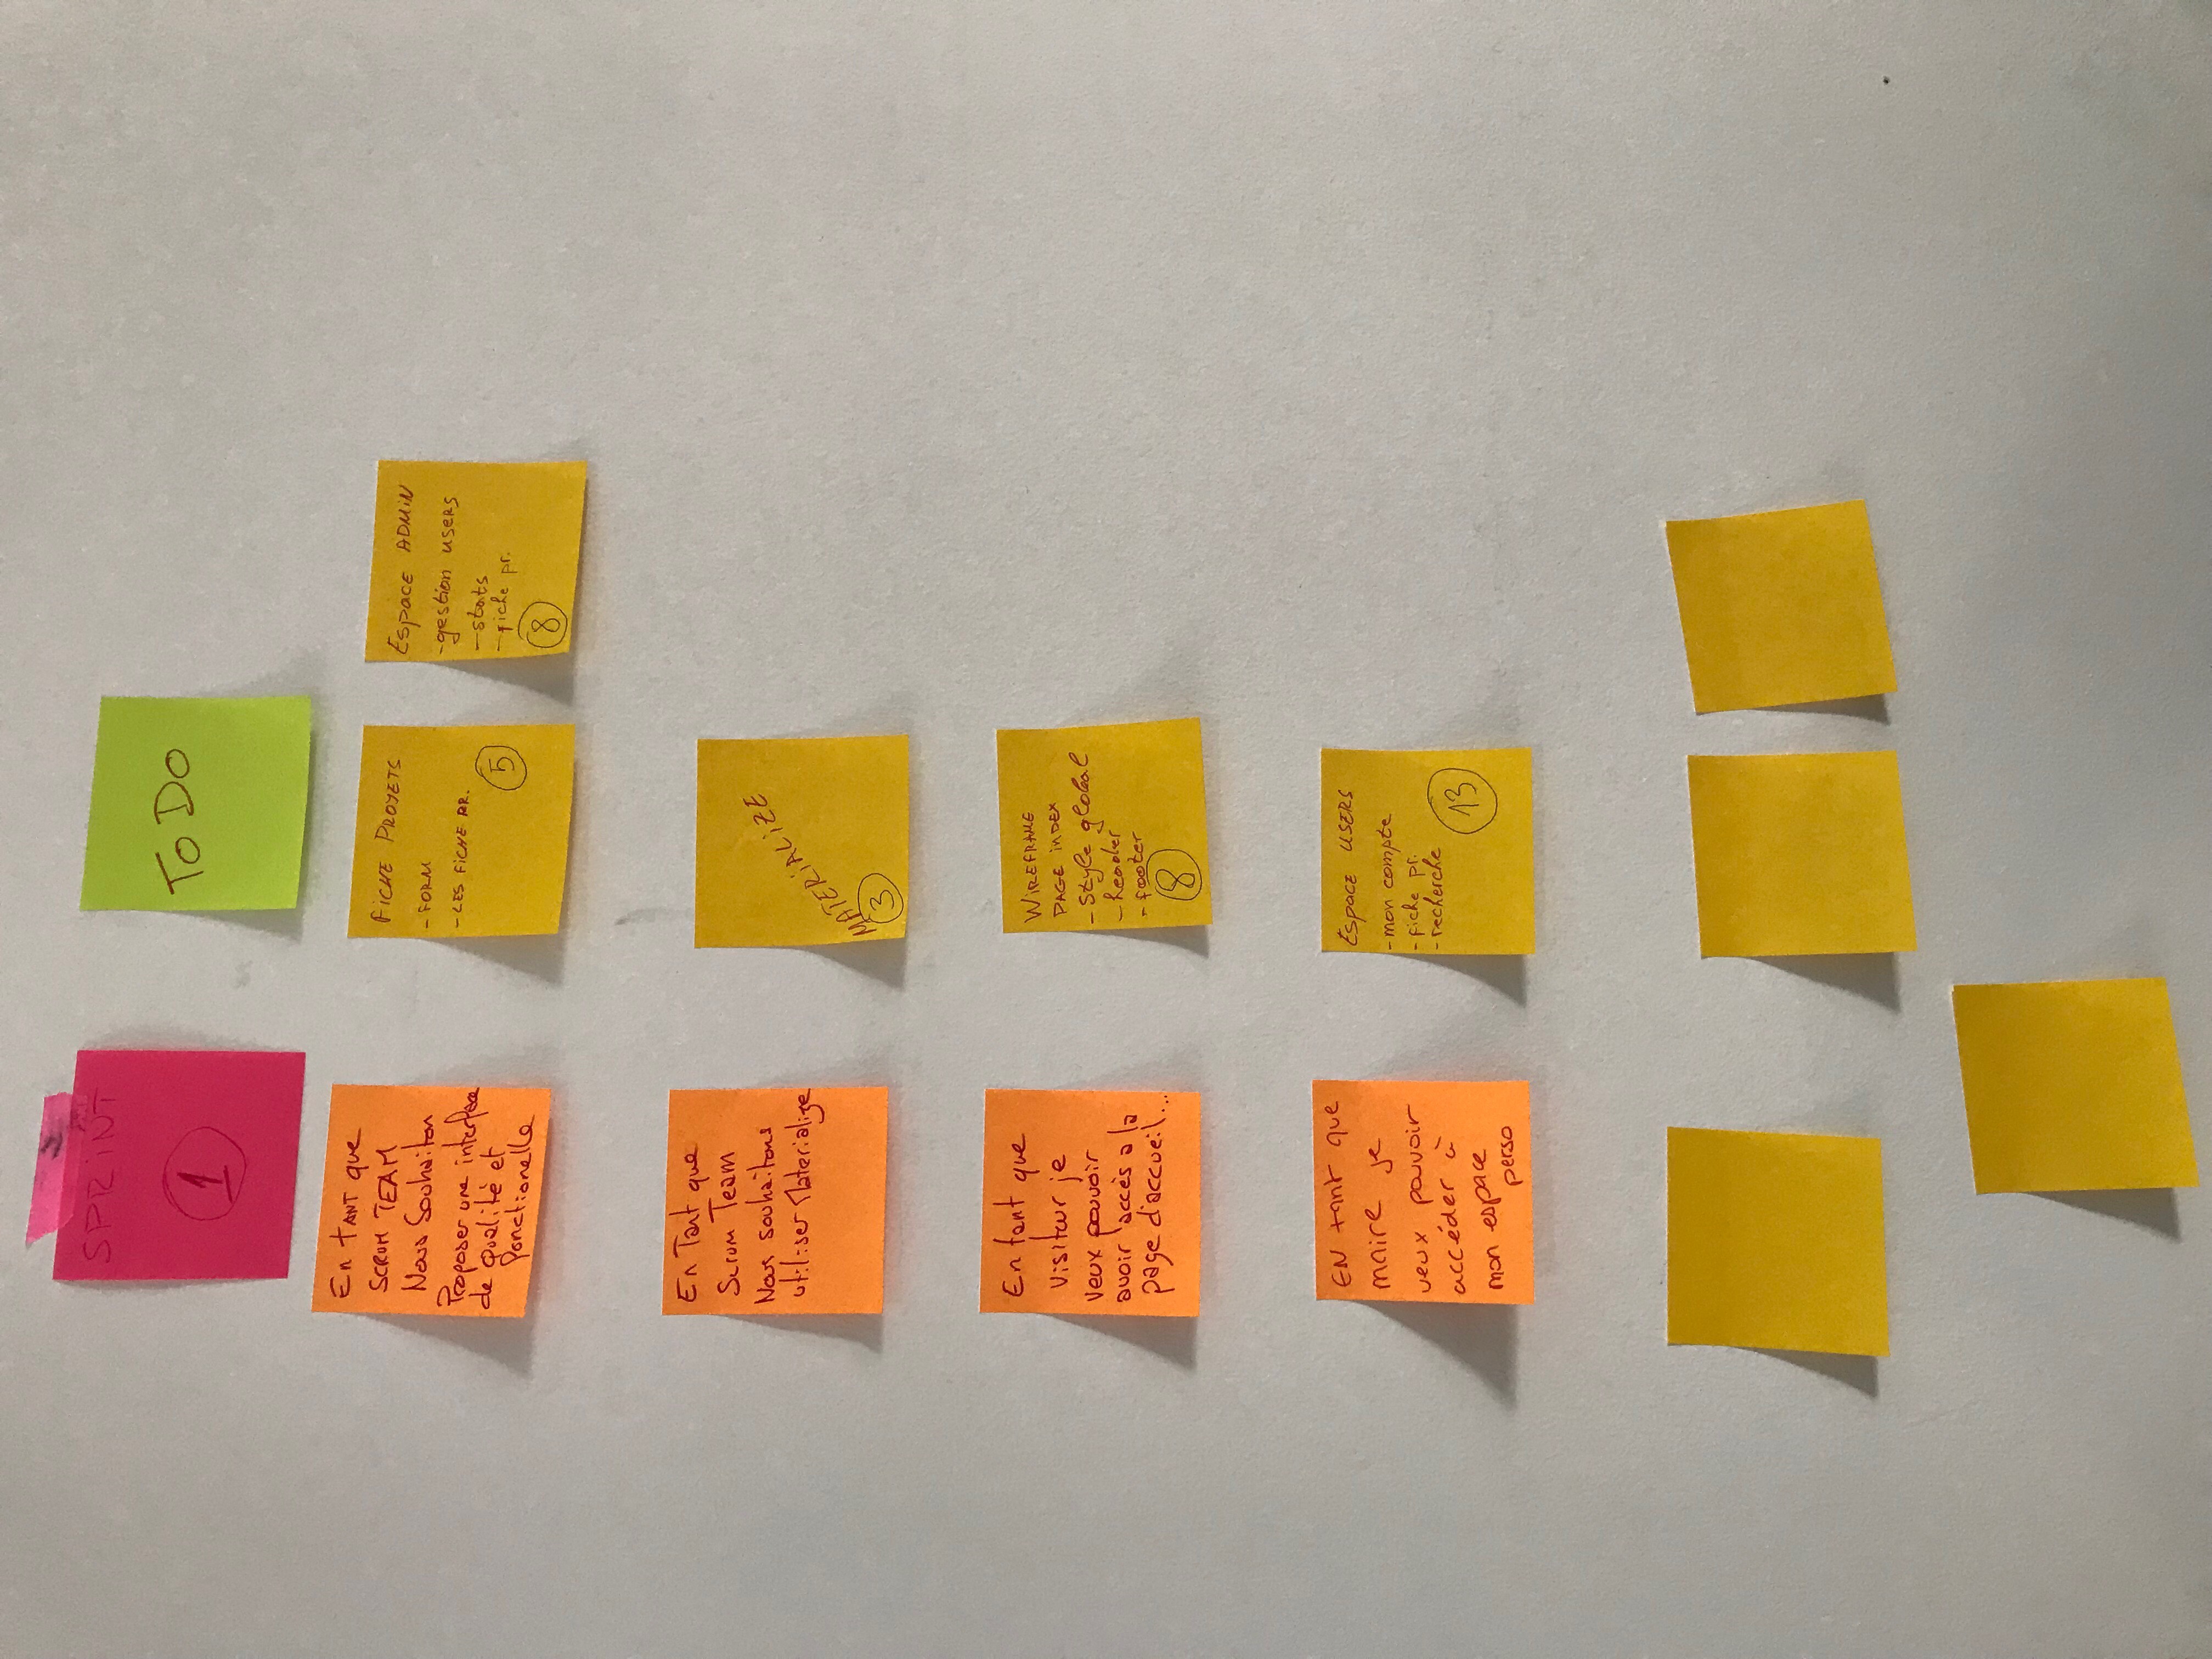 SPRINT
1
To Do
En TANT que
SCRUM TEAM
Nous Souhaiton
Proposer une interface
de qualité et
fonctionelle
FICHE PROJETS
- FORM
- LES FICHE PR.
5
Espace ADMIN
- gestion users
- stats
- fiche pr.
8
En Tant que
Scrum Team
Nous souhaitons
utiliser Materialize
MATERIALIZE
3
En tant que
visiteur je
veux pouvoir
avoir accès a la
page d'accueil...
WIREFRAME
PAGE INDEX
- Style global
- header
- footer
8
EN tant que
maire je
veux pouvoir
accéder à
mon espace
perso
Espace USERS
- mon compte
- fiche pr.
- recherche
13